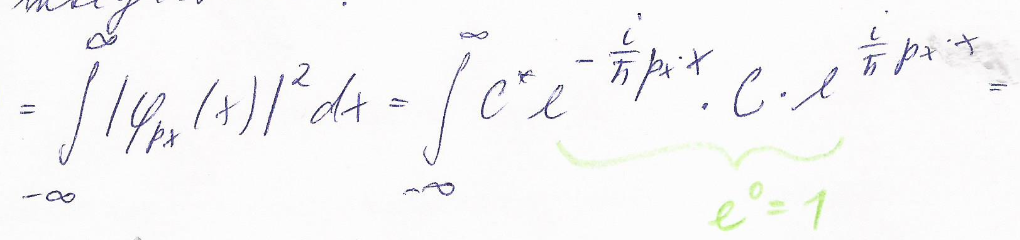 = ∫_{-∞}^{∞} |φ_{px}(x)|² dx = ∫_{-∞}^{∞} C* e^{-\frac{i}{ħ} p_x·x} · C · e^{\frac{i}{ħ} p_x·x} =
e⁰ = 1